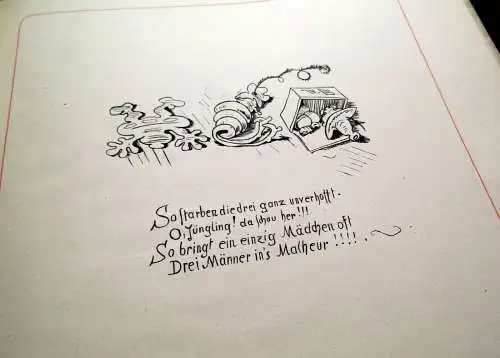 So starben die drei ganz unverhofft.
O, Jüngling! da schau her!!!
So bringt ein einzig Mädchen oft
Drei Männer in's Malheur!!!!